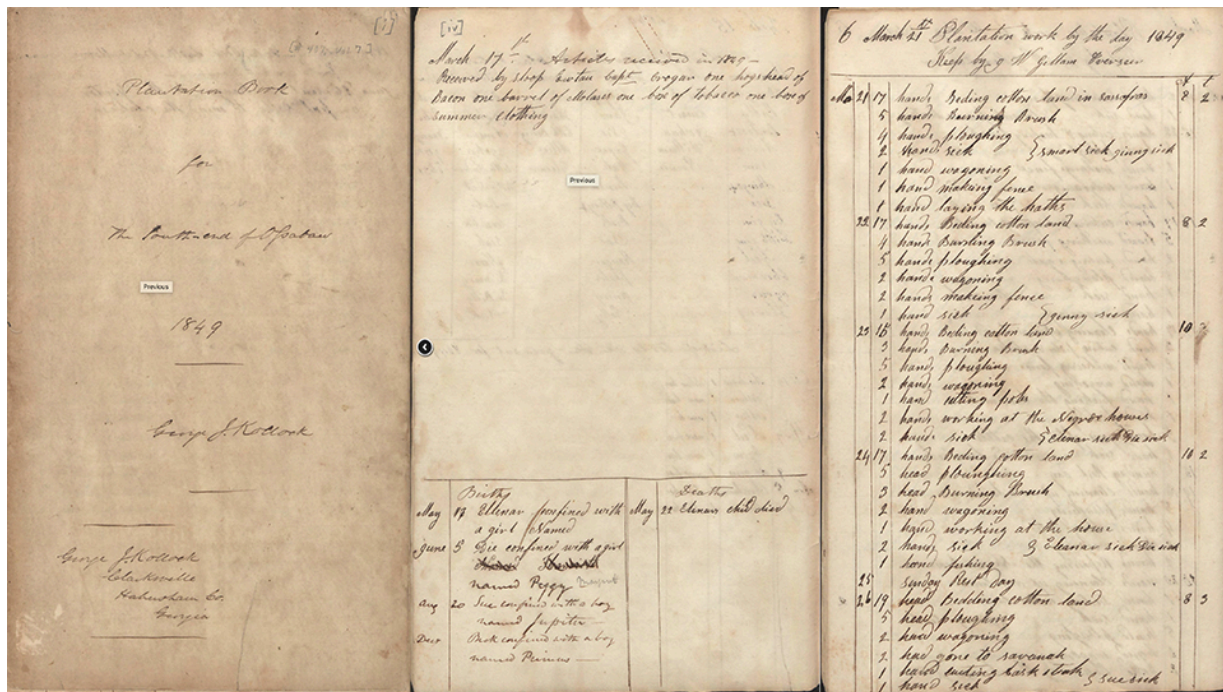 [i]
Plantation Book
for
The South-end of Ossabaw
Previous
1849
George J. Kollock
George J. Kollock
Clarkesville
Habersham Co.
Georgia
[iv]
March 17th Articles received in 1849 —
Received by sloop Capt. Grogan one hogshead of
Bacon one barrel of Molases one box of tobacco one box of
summer clothing
Previous
Births
Deaths
May 13 Ellenar confined with
a girl Named
May 22 Elenars child died
June 5 Sue confined with a girl
named Peggy
Aug 20 Sue confined with a boy
named Jupiter —
Decr Beck confined with a boy
named Primus —
6 March 21th Plantation work by the day 1849
Keept by J W Gellam Oversear
Ma 21 17 hands Beding cotton land in 8 2
5 hands Burning Brush
4 hands ploughing
2 hands sick } smart sick ginny sick
1 hand wagoning
1 hand makeing fence
1 hand laying the haths
22 17 hands Beding cotton land 8 2
4 hands Bursting Brush
5 hands ploughing
2 hands wagoning
2 hands makeing fence
1 hand sick } ginny sick
23 18 hands Beding cotton land 10
3 hands Burning Brush
5 hands ploughing
2 hands wagoning
1 hand cutting pols
2 hands working at the Negroe houses
2 hands sick } elenar sick Sue sick
24 17 hands Beding cotton land 10 2
5 head ploughing
3 head Burning Brush
2 hand wagoning
1 hand working at the house
2 hands sick } Eleanar sick Sue sick
1 hand fishing
25 Sunday Rest Day
26 19 head Bedding cotton land 8 3
5 head ploughing
2 head wagoning
2 had gone to savanah
1 heard cutting
1 hand sick } sue sick